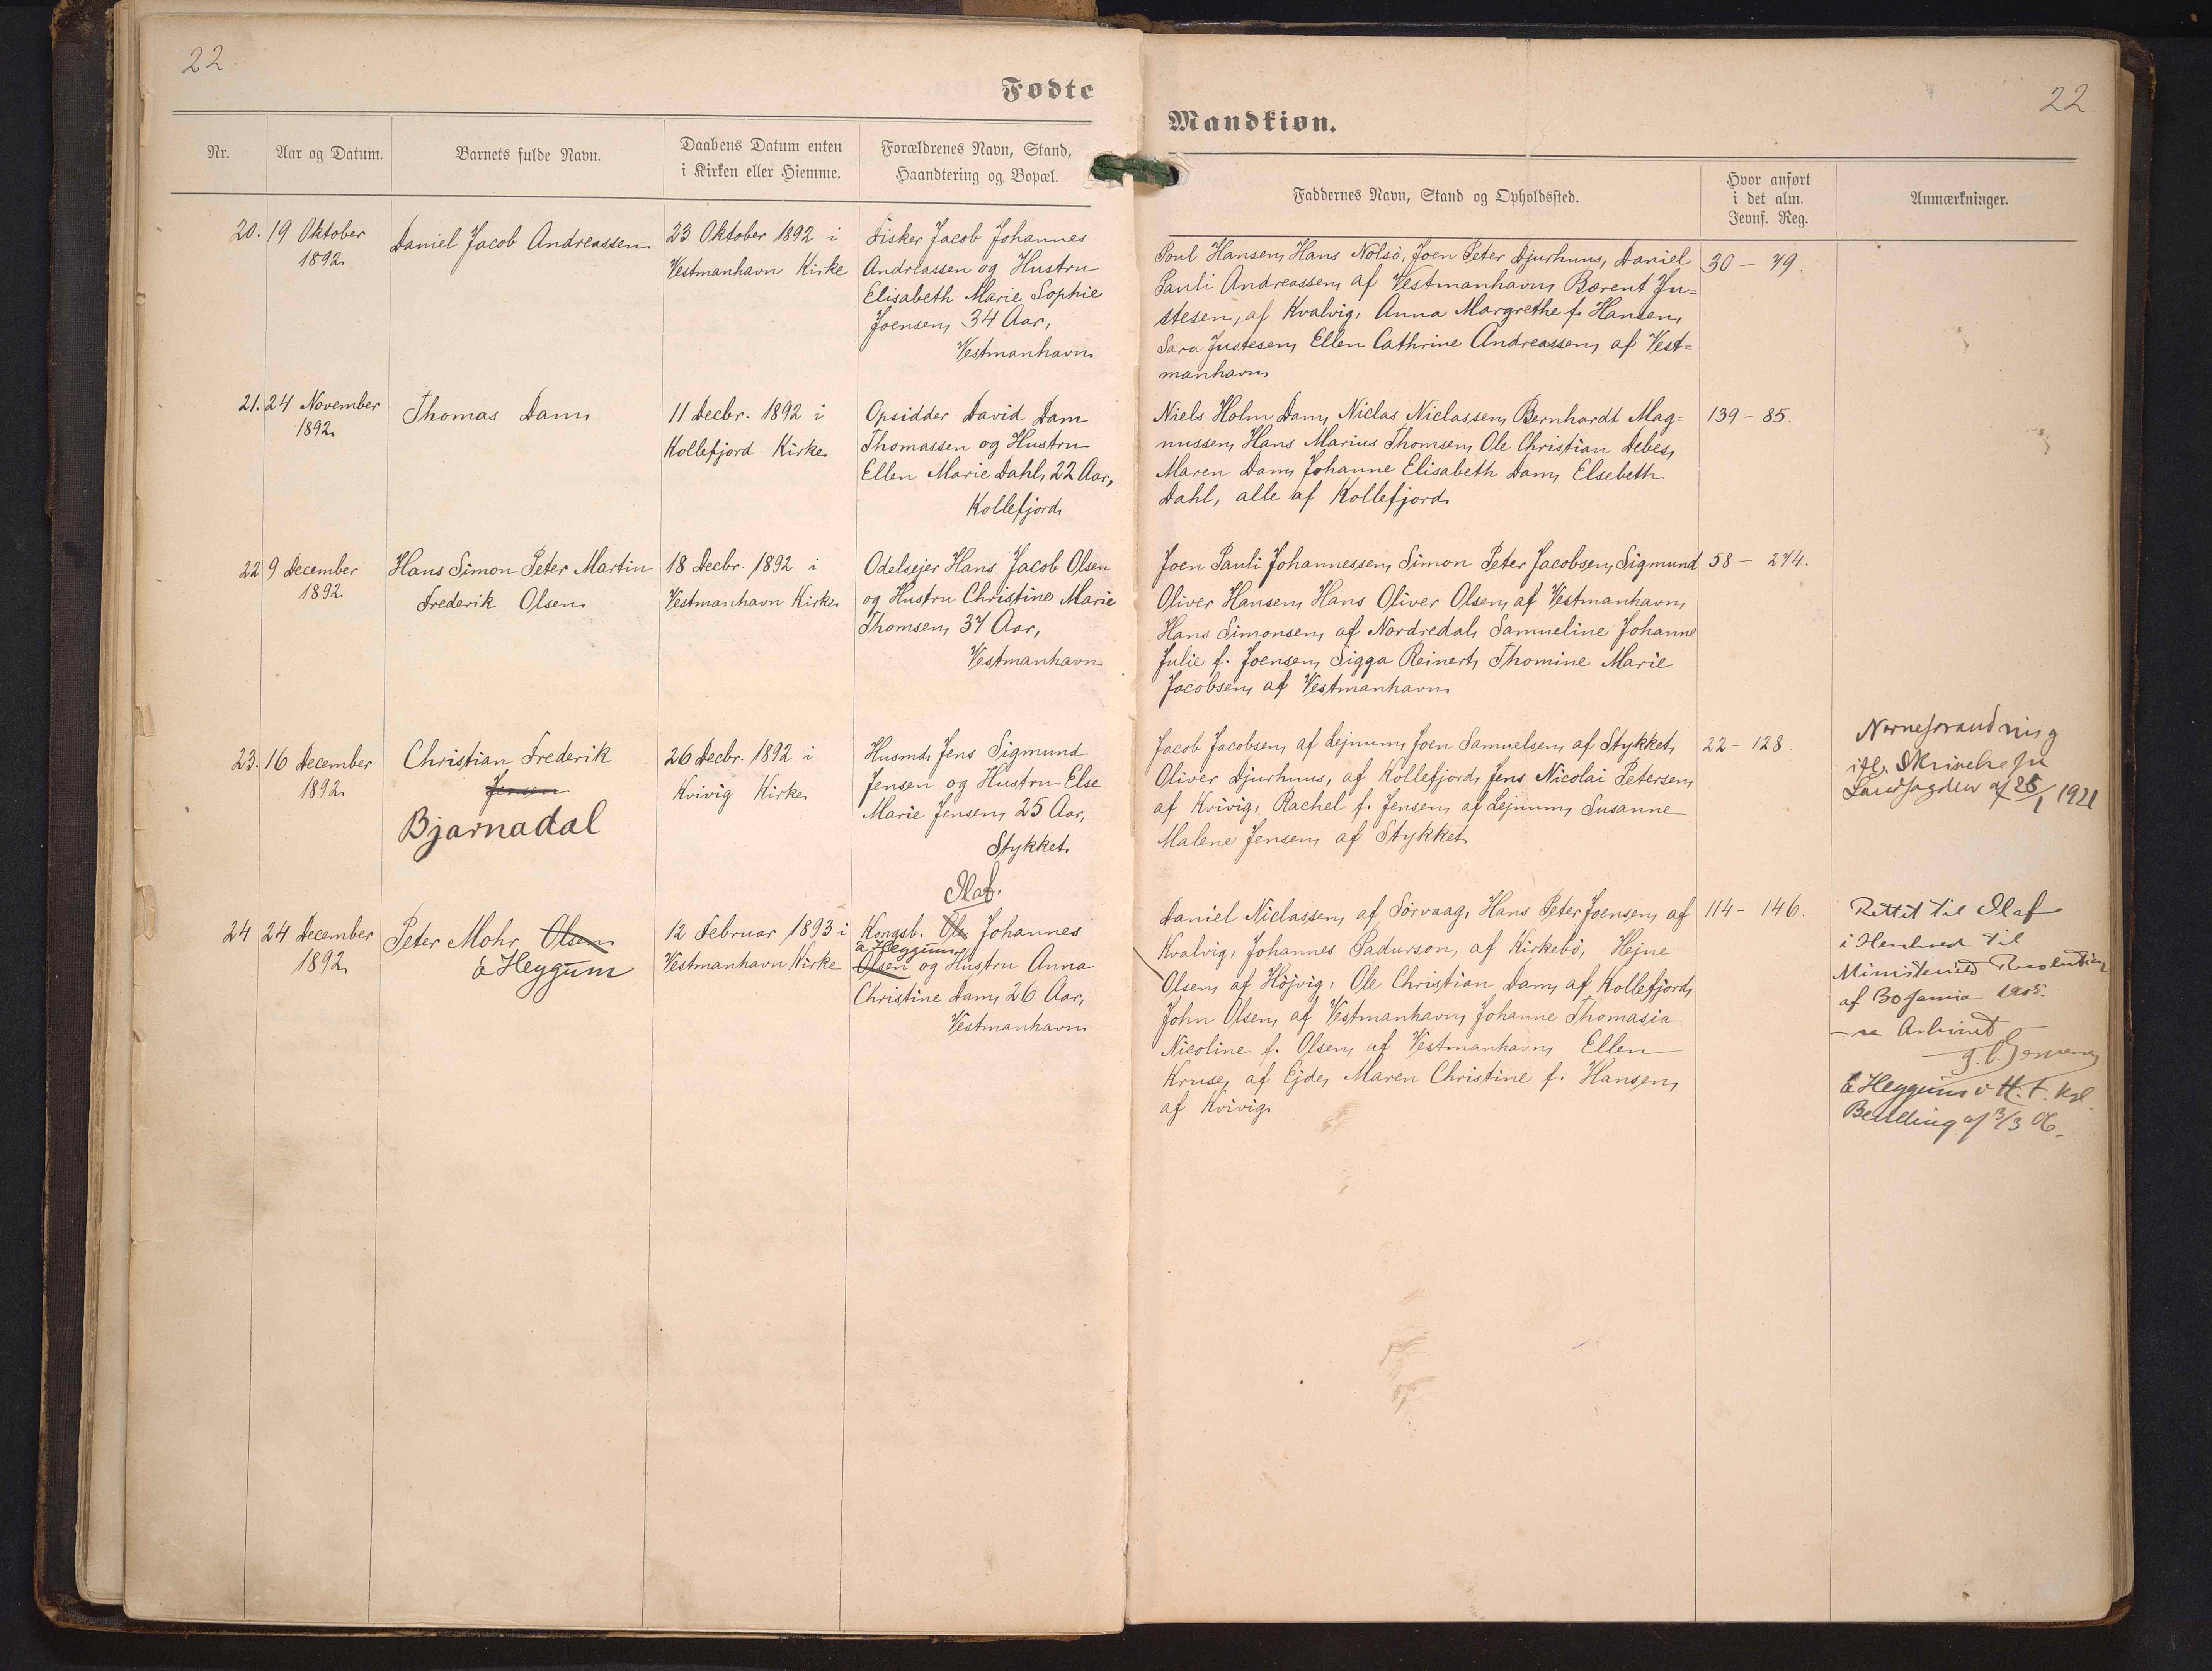 22.
Fødte
Nr.
Aar og Datum.
Barnets fulde Navn.
Daabens Datum enten
i Kirken eller Hiemme.
Forældrenes Navn, Stand,
Haandtering og Bopæl.
20.
19 Oktober
1892.
Daniel Jacob Andreassen
23 Oktober 1892 i
Vestmanhavn Kirke
Fisker Jacob Johannes
Andreassen og Hustru
Elisabeth Marie Sophie
Joensen, 34 Aar,
Vestmanhavn
21.
24 November
1892.
Thomas Dam
11 Decbr. 1892 i
Kollefjord Kirke
Opsidder David Dam
Thomassen og Hustru
Ellen Marie Dahl, 22 Aar,
Kollefjord
22
9 December
1892.
Hans Simon Peter Martin
Frederik Olsen
18 Decbr. 1892 i
Vestmanhavn Kirke
Odelsejer Hans Jacob Olsen
og Hustru Christine Marie
Thomsen, 37 Aar,
Vestmanhavn
23.
16 December
1892.
Christian Frederik
Jensen
Bjarnadal
26 Decbr. 1892 i
Kvivig Kirke
Husmd. Jens Sigmund
Jensen og Hustru Else
Marie Jensen, 25 Aar,
Stykket
24
24 December
1892.
Peter Mohr Olsen
á Heygum
12 Februar 1893 i
Vestmanhavn Kirke
Olaf.
Kongsb. Ole Johannes
á Heygum
Olsen og Hustru Anna
Christine Dam, 26 Aar,
Vestmanhavn
22.
Mandkiøn.
Faddernes Navn, Stand og Opholdssted.
Hvor anført
i det alm.
Jevnf. Reg.
Anmærkninger.
Poul Hansen, Hans Nolsö, Joen Peter Djurhuus, Daniel
Pauli Andreassen, af Vestmanhavn, Bærent Ju=
stesen, af Kvalvig, Anna Margrethe f. Hansen,
Sara Justesen, Ellen Cathrine Andreassen, af Vest=
manhavn
30 - 79.
Niels Holm Dam, Niclas Niclassen, Bernhardt Mag=
nussen, Hans Marius Thomsen, Ole Christian Debes,
Maren Dam, Johanne Elisabeth Dam, Elsebeth
Dahl, alle af Kollefjord
139 - 85.
Joen Pauli Johannessen, Simon Peter Jacobsen, Sigmund
Oliver Hansen, Hans Oliver Olsen, af Vestmanhavn,
Hans Simonsen, af Nordredal, Samueline Johanne
Julie f. Joensen, Sigga Reinert, Thomine Marie
Jacobsen, af Vestmanhavn
58 - 274.
Jacob Jacobsen, af Lejnum, Joen Samuelsen, af Stykket,
Oliver Djurhuus, af Kollefjord, Jens Nicolai Petersen,
af Kvivig, Rachel f. Jensen, af Lejnum, Susanne
Malene Jensen, af Stykket
22 - 128.
Navneforandring
Landfogden af 25/1 1921
Daniel Niclassen, af Sörvaag, Hans Peter Joensen, af
Kvalvig, Johannes Padurson, af Kirkebö, Hejne
Olsen, af Höjvig, Ole Christian Dam, af Kollefjord,
John Olsen, af Vestmanhavn, Johanne Thomasia
Nicoline f. Olsen, af Vestmanhavn, Ellen
Kruse, af Ejde, Maren Christine f. Hansen,
af Kvivig
114 - 146.
Rettet til Olaf
i Henhold til
Ministeriets Resolution
af 30 Januar 1905.
á Heygum i H. t. kgl.
Bevilling af 3/3 06.